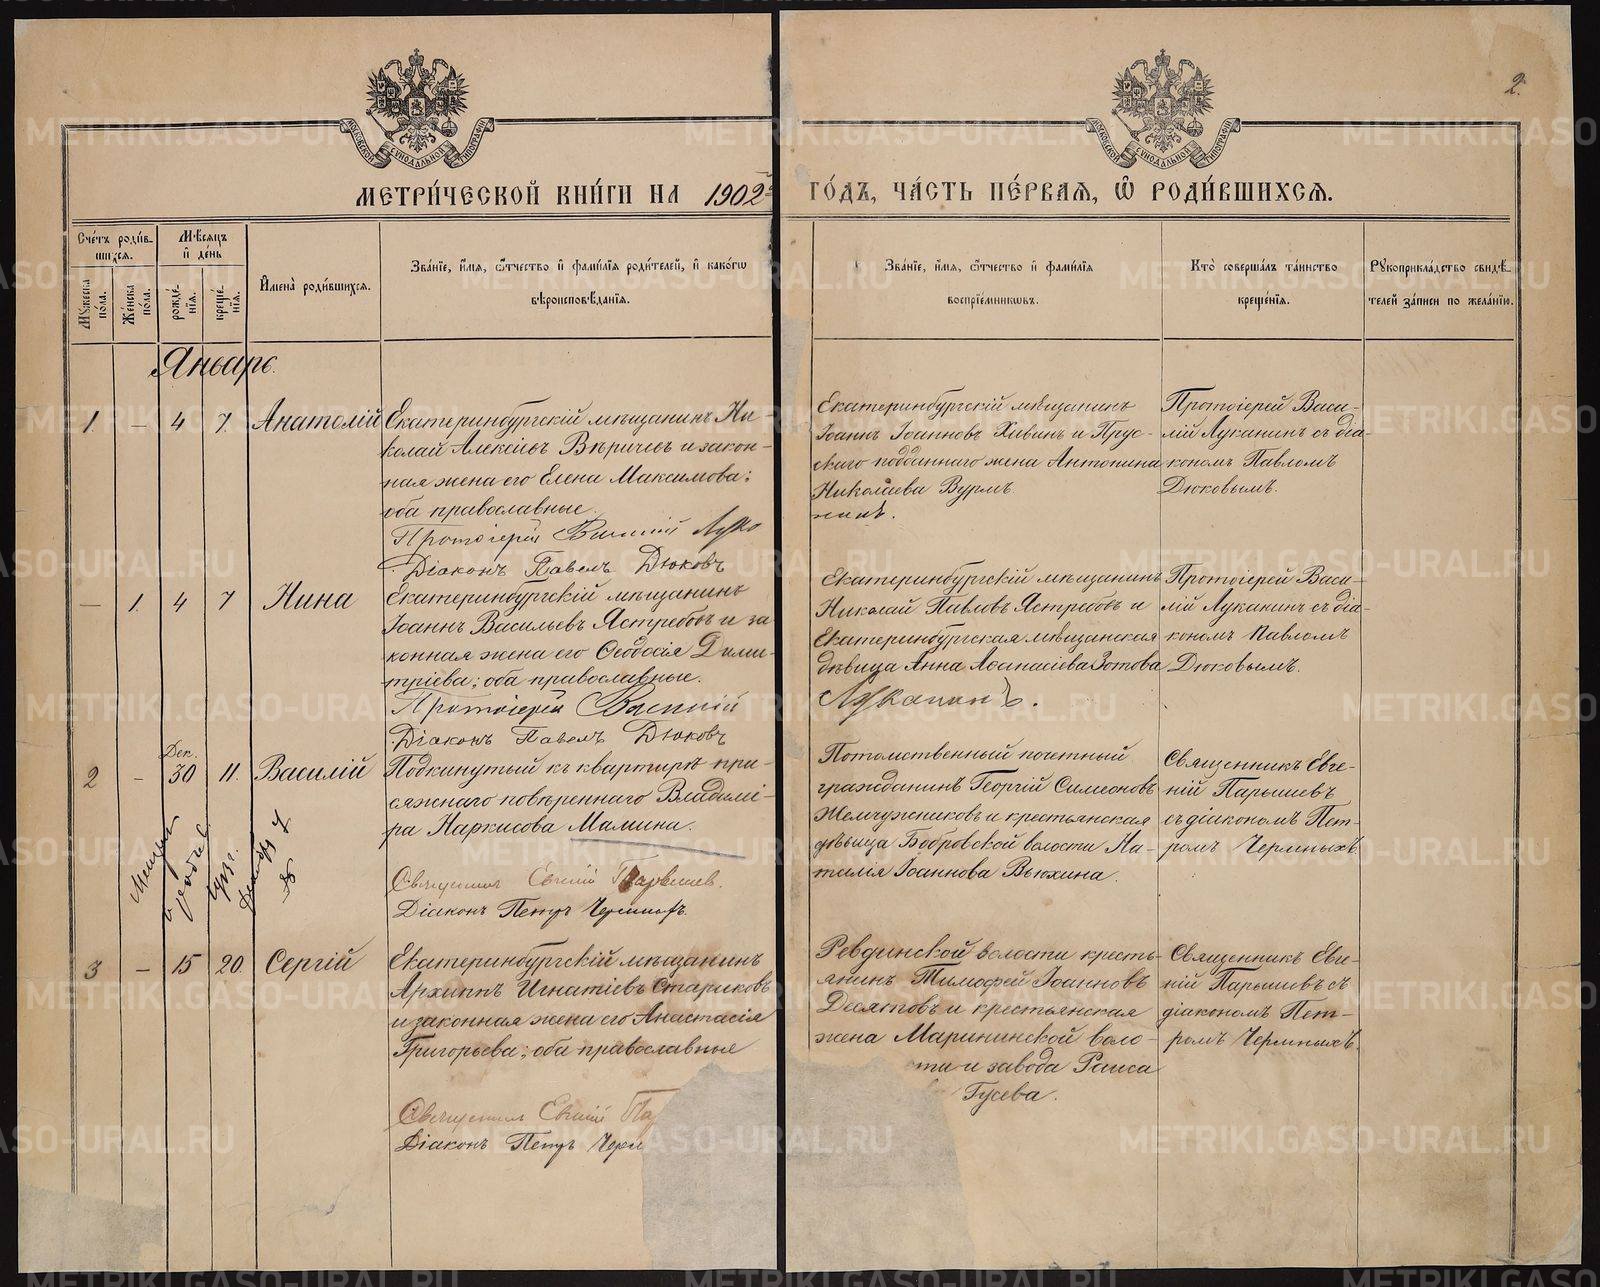 2.
МЕТРИ́ЧЕСКОЙ КНИ́ГИ НА 1902й
ГО́ДЪ, ЧА́СТЬ ПЕ́РВАЯ, Ѡ РОДИ́ВШИХСЯ.
Сче́тъ роди́в-
шихся.
Мꙋжеска по́ла.
Же́нска по́ла.
Мѣ́сяцъ и де́нь
рожде́нія.
креще́нія.
Имена̀ роди́вшихся.
Зва́ніе, и́мя, ѻ҆́тчество и фами́лія роди́телей, и како́гѡ
вѣроисповѣ́данія.
Зва́ніе, и́мя, ѻ҆́тчество и фами́лія
воспріе́мниковъ.
Кто̀ соверша́лъ та́инство
креще́нія.
Рꙋкоприкла́дство свидѣ́-
телей за́писи по жела́нію.
Январь.
1. – 4 7. Анатолій
Екатеринбургскій мѣщанинъ Ни-
колай Алексіевъ Вѣричевъ и закон-
ная жена его Елена Максимова;
оба православные.
Протоіерей Василій Луко
Діаконъ Павелъ Дюковъ
Екатеринбургскій мѣщанинъ
Іоаннъ Іоанновъ Хивинъ и Прус-
скаго подданнаго жена Антонина
Николаева Вурмъ
нинъ.
Протоіерей Васи-
лій Луканинъ съ діа-
кономъ Павломъ
Дюковымъ.
– 1. 4 7 Нина
Екатеринбургскій мѣщанинъ
Іоаннъ Васильевъ Ястребовъ и за
конная жена его Ѳеодосія Дими-
тріева; оба православные.
Протоіерей Василій
Діаконъ Павелъ Дюковъ
Екатеринбургскій мѣщанинъ
Николай Павловъ Ястребовъ и
Екатеринбургская мѣщанская
дѣвица Анна Аѳанасіева Зотова
Луканинъ.
Протоіерей Васи-
лій Луканинъ съ діа-
кономъ Павломъ
Дюковымъ.
Дек.
2 – 30 11. Василій
Подкинутый къ квартирѣ при-
сяжнаго повѣреннаго Владимі-
ра Наркисова Мамина.
Священникъ Евгеній Парышев.
Діаконъ Петръ Черныхъ.
Потомственный почетный
гражданинъ Георгій Симеоновъ
Жемчужниковъ и крестьянская
дѣвица Бобровской волости На-
талія Іоаннова Вьюхина.
Священникъ Евге-
ній Парышевъ
съ діакономъ Пет-
ромъ Черныхъ
3 – 15 20. Сергій
Екатеринбургскій мѣщанинъ
Архиппъ Игнатіевъ Стариковъ
и законная жена его Анастасія
Григорьева; оба православные
Священникъ Евгеній Па
Діаконъ Петръ Черн
Ревдинской волости кресть-
янинъ Тимофей Іоанновъ
Десятовъ и крестьянская
жена Марининской воло-
сти и завода Раиса
Гусева.
Священникъ Евге-
ній Парышевъ съ
діакономъ Пет-
ромъ Черныхъ.
METRIKI.GASO-URAL.RU